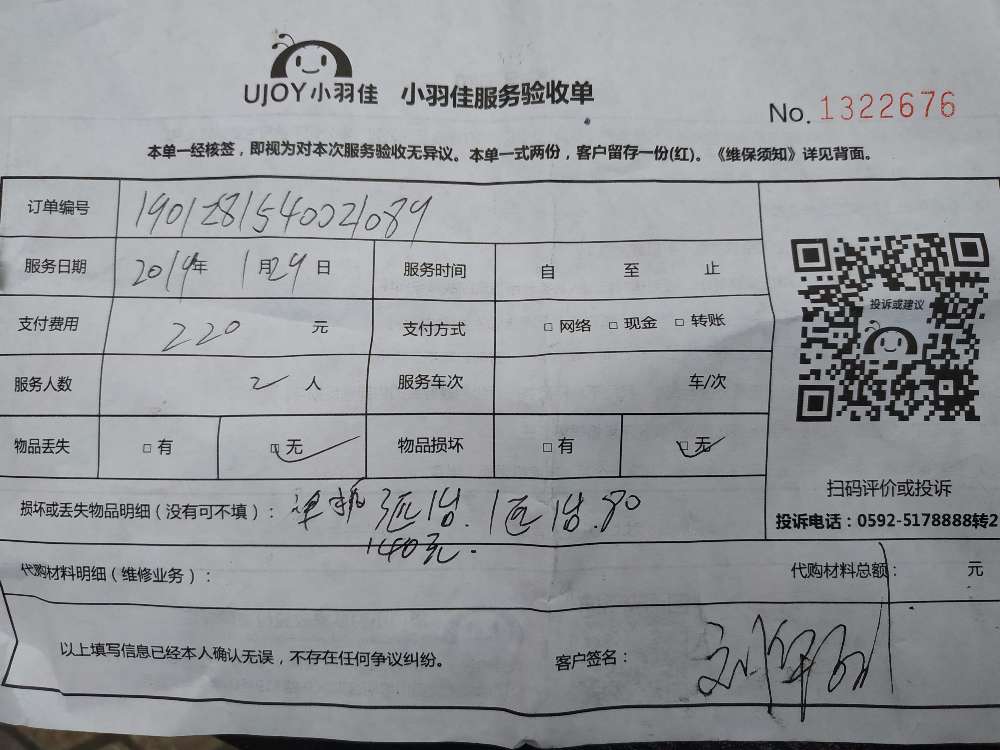 UJOY小羽佳 小羽佳服务验收单
No. 1322676
本单一经核签，即视为对本次服务验收无异议。本单一式两份，客户留存一份(红)。《维保须知》详见背面。
订单编号 1901281540021089
服务日期 2019年 1月29日 服务时间 自 至 止
投诉或建议
支付费用 220 元 支付方式 □ 网络 □ 现金 □ 转账
服务人数 2 人 服务车次 车/次
物品丢失 □ 有 □ 无 物品损坏 □ 有 □ 无
扫码评价或投诉
损坏或丢失物品明细（没有可不填）： 1台. 1匹1台.80
投诉电话：0592-5178888转2
140元.
代购材料明细（维修业务）： 代购材料总额： 元
以上填写信息已经本人确认无误，不存在任何争议纠纷。 客户签名：